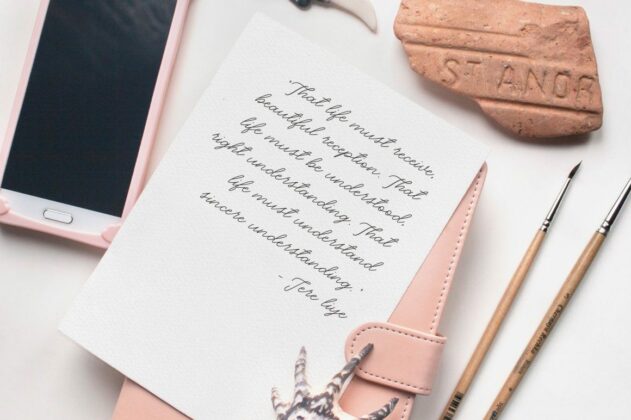 'That life must receive,
beautiful reception. That
life must be understood,
right understanding. That
life must understand
sincere understanding.'
- Tere liye
STANOR